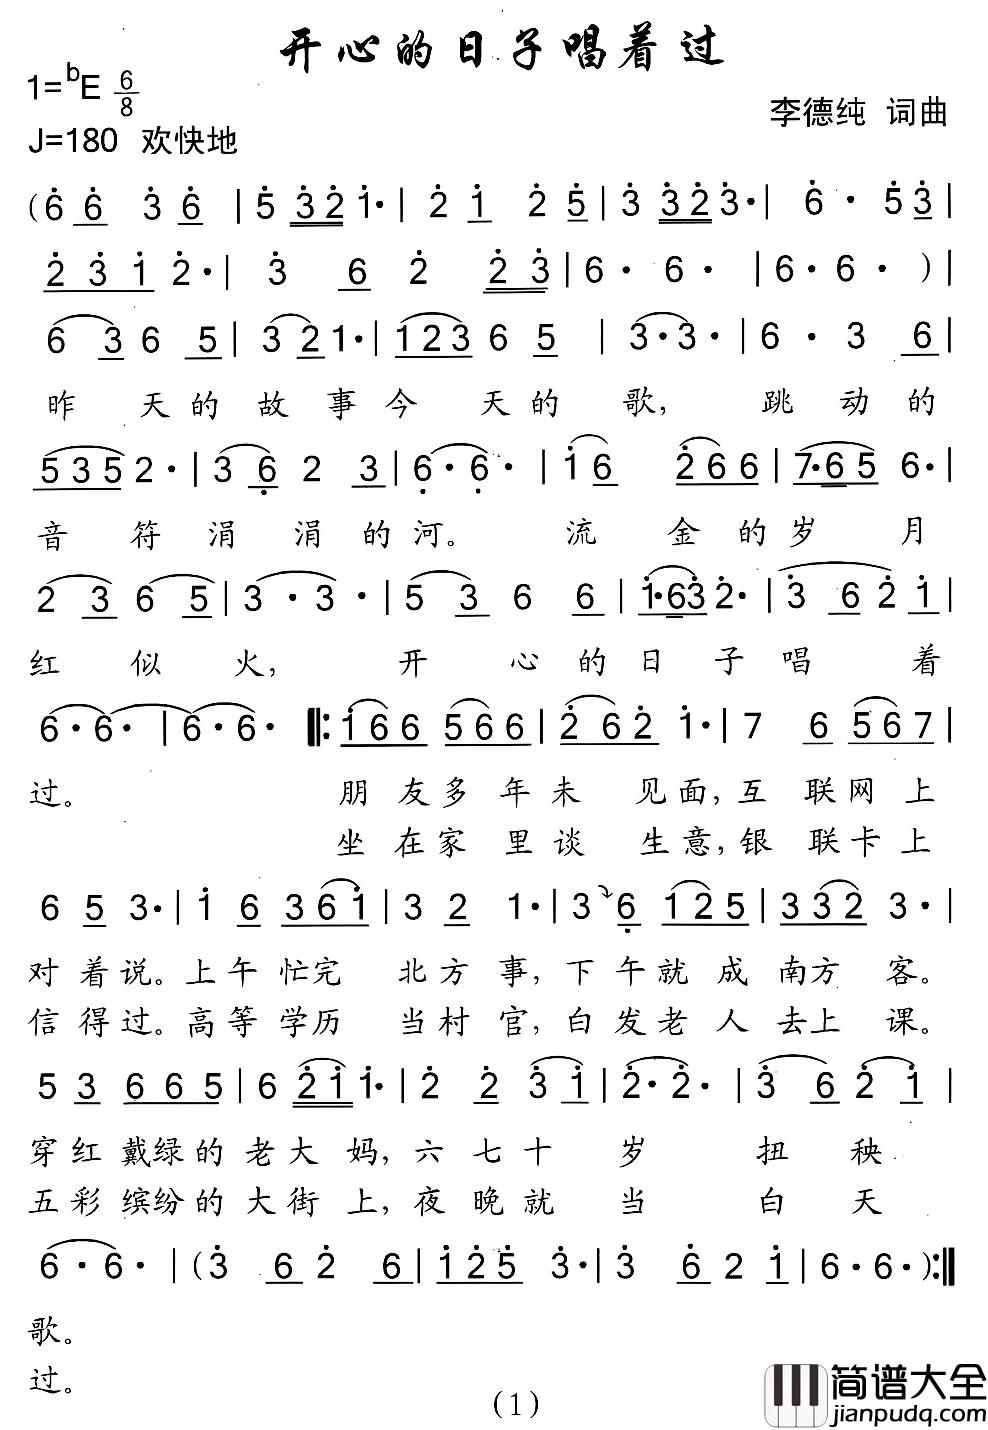 开心的日子唱着过
1=bE 6/8
李德纯 词曲
J=180 欢快地
(6 6 3 6 | 5 3 2 1· | 2 1 2 5 | 3 3 2 3· | 6· 5 3 |
2 3 1 2· | 3 6 2 2 3 | 6· 6· | 6· 6· ) |
6 3 6 5 | 3 2 1· | 1 2 3 6 5 | 3· 3· | 6· 3 6 |
昨天的故事今天的歌, 跳动的
5 3 5 2· | 3 6 2 3 | 6· 6· | 1 6 2 6 6 | 7· 6 5 6· |
音符涓涓的河。 流金的岁月
2 3 6 5 | 3· 3· | 5 3 6 6 | 1· 6 3 2· | 3 6 2 1 |
红似火, 开心的日子唱着
6· 6· | 6· 6· ‖: 1 6 6 5 6 6 | 2 6 2 1· | 7 6 5 6 7 |
过。 朋友多年未见面, 互联网上
坐在家里谈生意, 银联卡上
6 5 3· | 1 6 3 6 1 | 3 2 1· | 3 6 1 2 5 | 3 3 2 3· |
对着说。上午忙完北方事, 下午就成南方客。
信得过。高等学历当村官, 白发老人去上课。
5 3 6 6 5 | 6 2 1 1· | 2 2 3 1 | 2· 2· | 3 6 2 1 |
穿红戴绿的老大妈, 六七十岁扭秧
五彩缤纷的大街上, 夜晚就当白天
6· 6· | (3 6 2 6 | 1 2 5 3· | 3 6 2 1 | 6· 6· ) :‖
歌。
过。
(1)
简谱大全
jianpudq.com